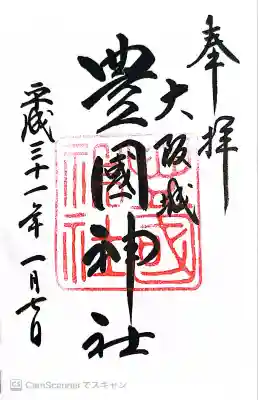 奉拝
大阪城
豊國神社
平成三十一年一月七日
豊國神社
CS CamScannerでスキャン